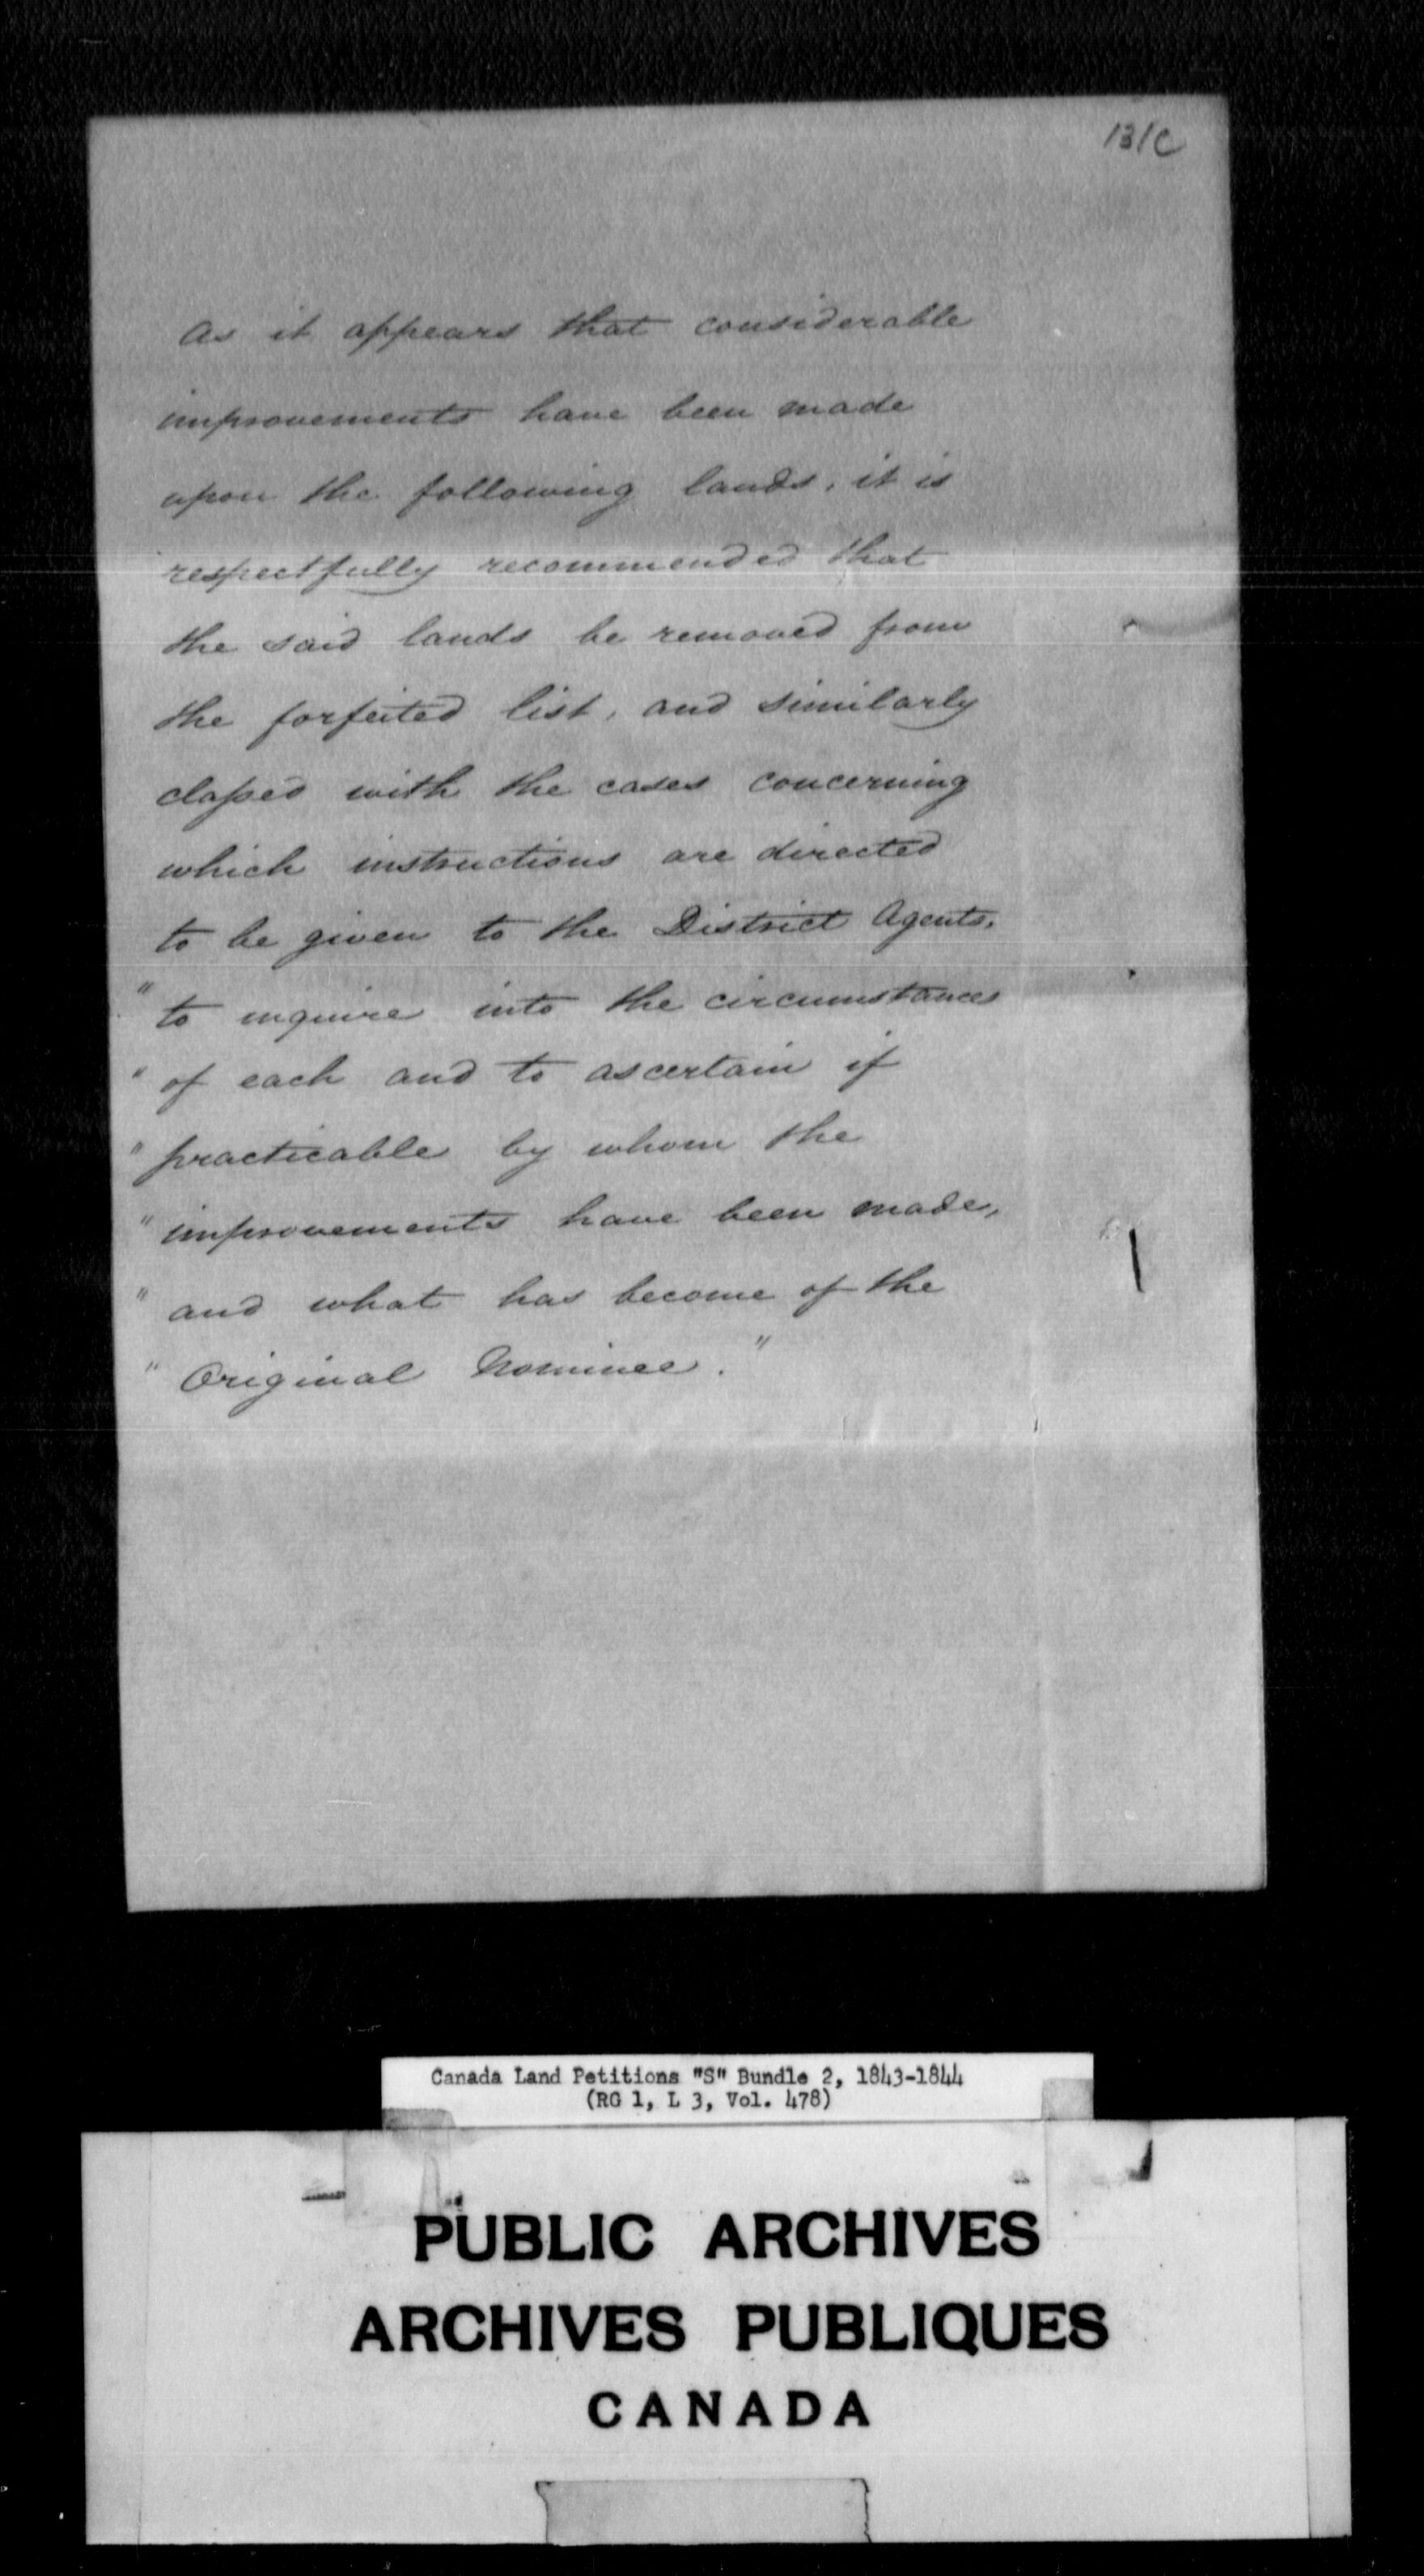 131C
As it appears that considerable
improvements have been made
upon the following lands, it is
respectfully recommended that
the said lands be removed from
the forfeited list, and similarly
classed with the cases concerning
which instructions are directed
to be given to the District Agents,
" to inquire into the circumstances
" of each and to ascertain if
" practicable by whom the
" improvements have been made,
" and what has become of the
" Original Nominee."
Canada Land Petitions "S" Bundle 2, 1843-1844
(RG 1, L 3, Vol. 478)
PUBLIC ARCHIVES
ARCHIVES PUBLIQUES
CANADA